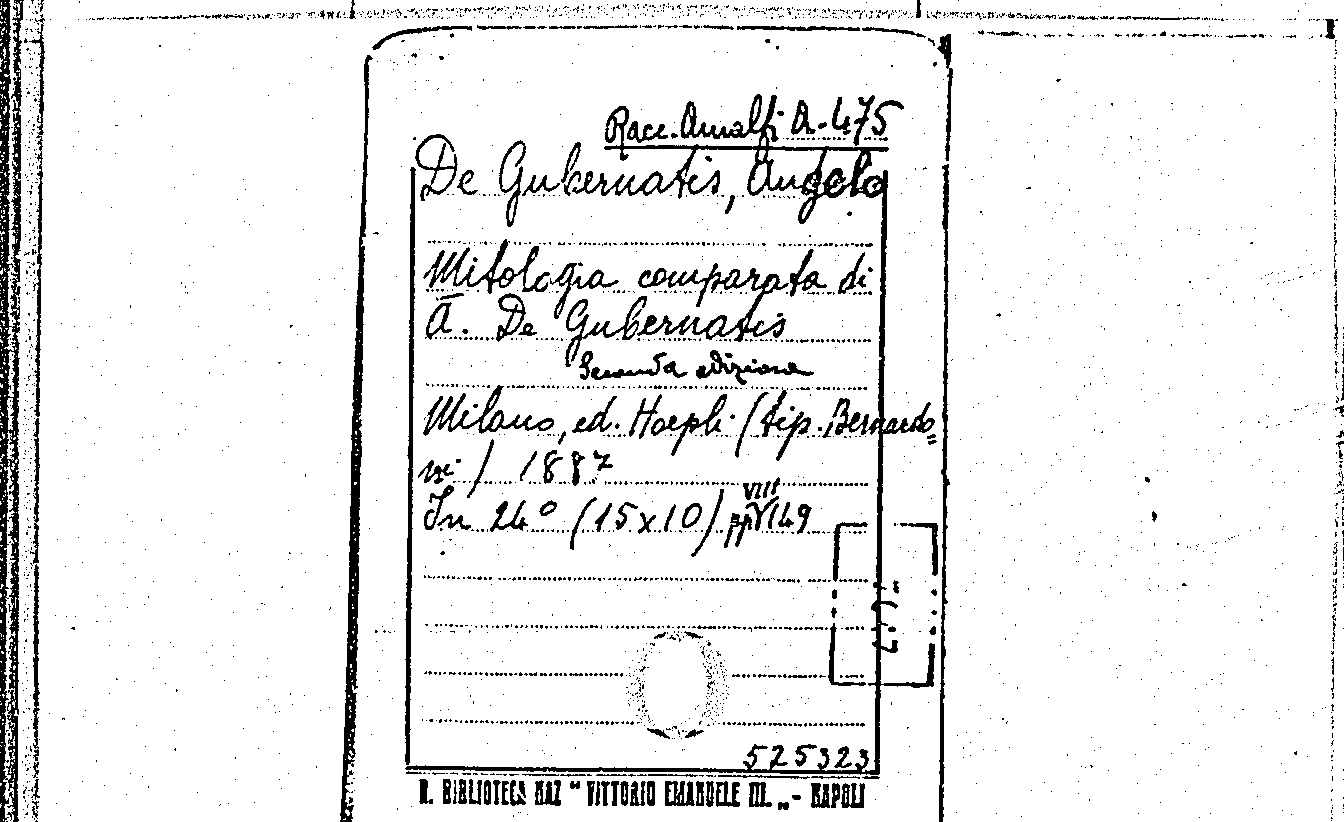 Racc. Amalfi A. 475
De Gubernatis, Angelo
Mitologia comparata di
A. De Gubernatis
Seconda edizione
Milano, ed. Hoepli (tip. Bernardo„
ni) 1887
In 24° (15x10) pp VIII 149
525323
R. BIBLIOTECA NAZ “ VITTORIO EMANUELE III. „ - NAPOLI